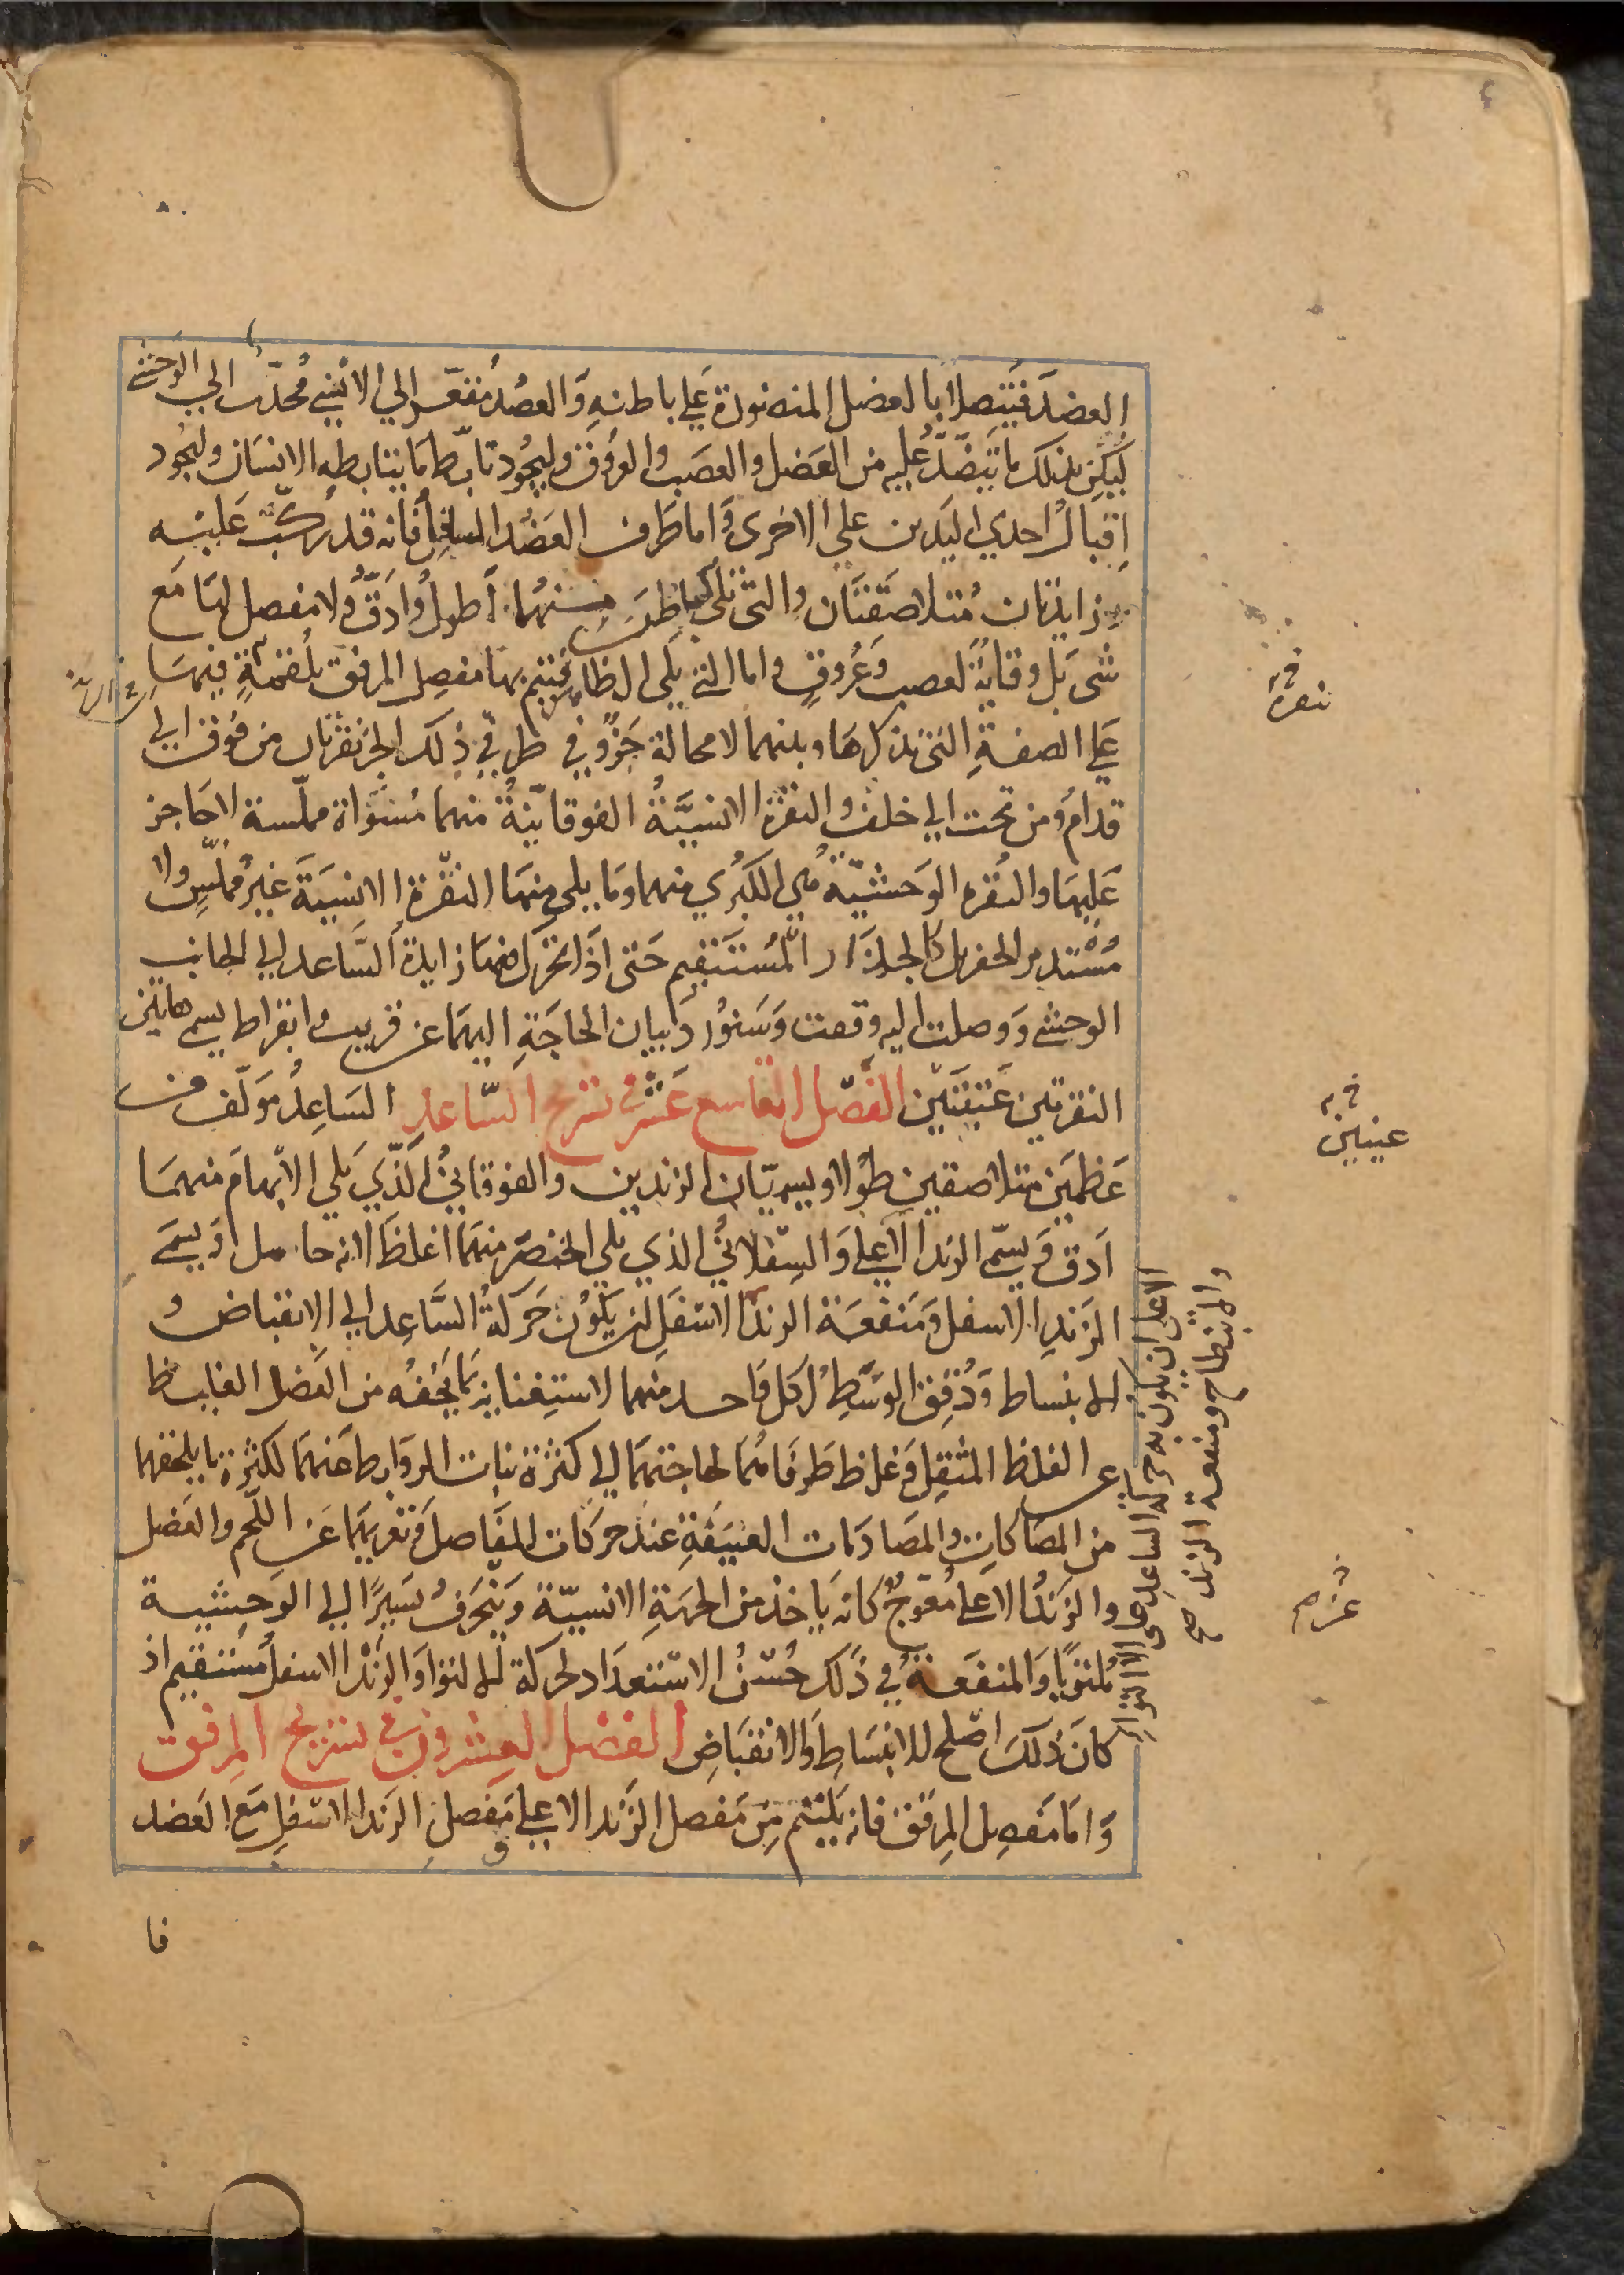 العضد فيتصلا بالعضل المنضودة على باطنه والعضد مقعر الي الانسي محدب الي الوحشي
ليكن بذلك ما يتنضد عليه من العضل والعصب والعروق وليجود تابط ما يتابطه الانسان وليجود
اقبال احدي اليدين علي الاخرى واما طرف العضد السافل فانه قد ركب عليه
زايدتان متلاصقتان والتي تلي الباطن منهما اطول وادق ولا مفصل لها مع
شى بل وقاية لعصب وعروق واما التي تلي الظاهر فيتم بها مفصل المرفق بلقمة فيها
علي الصفة التي نذكرها وبينهما لا محالة حز وفي طرفي ذلك الحز نقرتان من فوق الي
قدام ومن تحت الي خلف والنقرة الانسية الفوقانية منهما مسواة مملسة لا حاجز
عليها والنقرة الوحشية هي الكبري منهما وما يلي منها النقرة الانسية غير مملس ولا
مستدير الحفر بل كالجدار المستقيم حتى اذا تحرك فيها زايدة الساعد الي الجانب
الوحشي ووصلت اليه وقفت وسنورد بيان الحاجة اليهما عن قريب وابقراط يسمي هاتين
النقرتين عتبتين الفصل التاسع عشر في تشريح الساعد الساعد مؤلف من
عظمين متلاصقين طولا ويسميان الزندين والفوقاني الذي يلي الابهام منهما
ادق ويسمي الزند الاعلي والسفلاني الذي يلي الخنصر منهما اغلظ لانه حامل ويسمي
الزند الاسفل ومنفعة الزند الاسفل ان يكون حركة الساعد الي الانقباض و
الانبساط ودقق الوسط لكل واحد منهما لاستغنايه بما يحفه من العضل الغليظ
عن الغلظ المثقل وغلظ طرفاهما لحاجتهما الي كثرة نبات الروابط عنهما لكثرة ما يلحقهما
من المصاكات والمصادمات العنيفة عند حركات المفاصل وتعريهما عن اللحم والعضل
والزند الاعلي معوج كانه ياخذ من الجهة الانسية وينحرف يسيرا الي الوحشية
ملتويا والمنفعة في ذلك حسن الاستعداد لحركة الالتوا والزند الاسفل مستقيم اذ
كان ذلك اصلح للانبساط والانقباض الفصل العشرون في تشريح المرفق
واما مفصل المرفق فانه يلتئم من مفصل الزند الاعلي ومفصل الزند الاسفل مع العضد
فا
نقرة
عينين
الاعلي ان يكون به حركة الساعد علي الالتوا
والانبطاح ومنفعة الزند صح